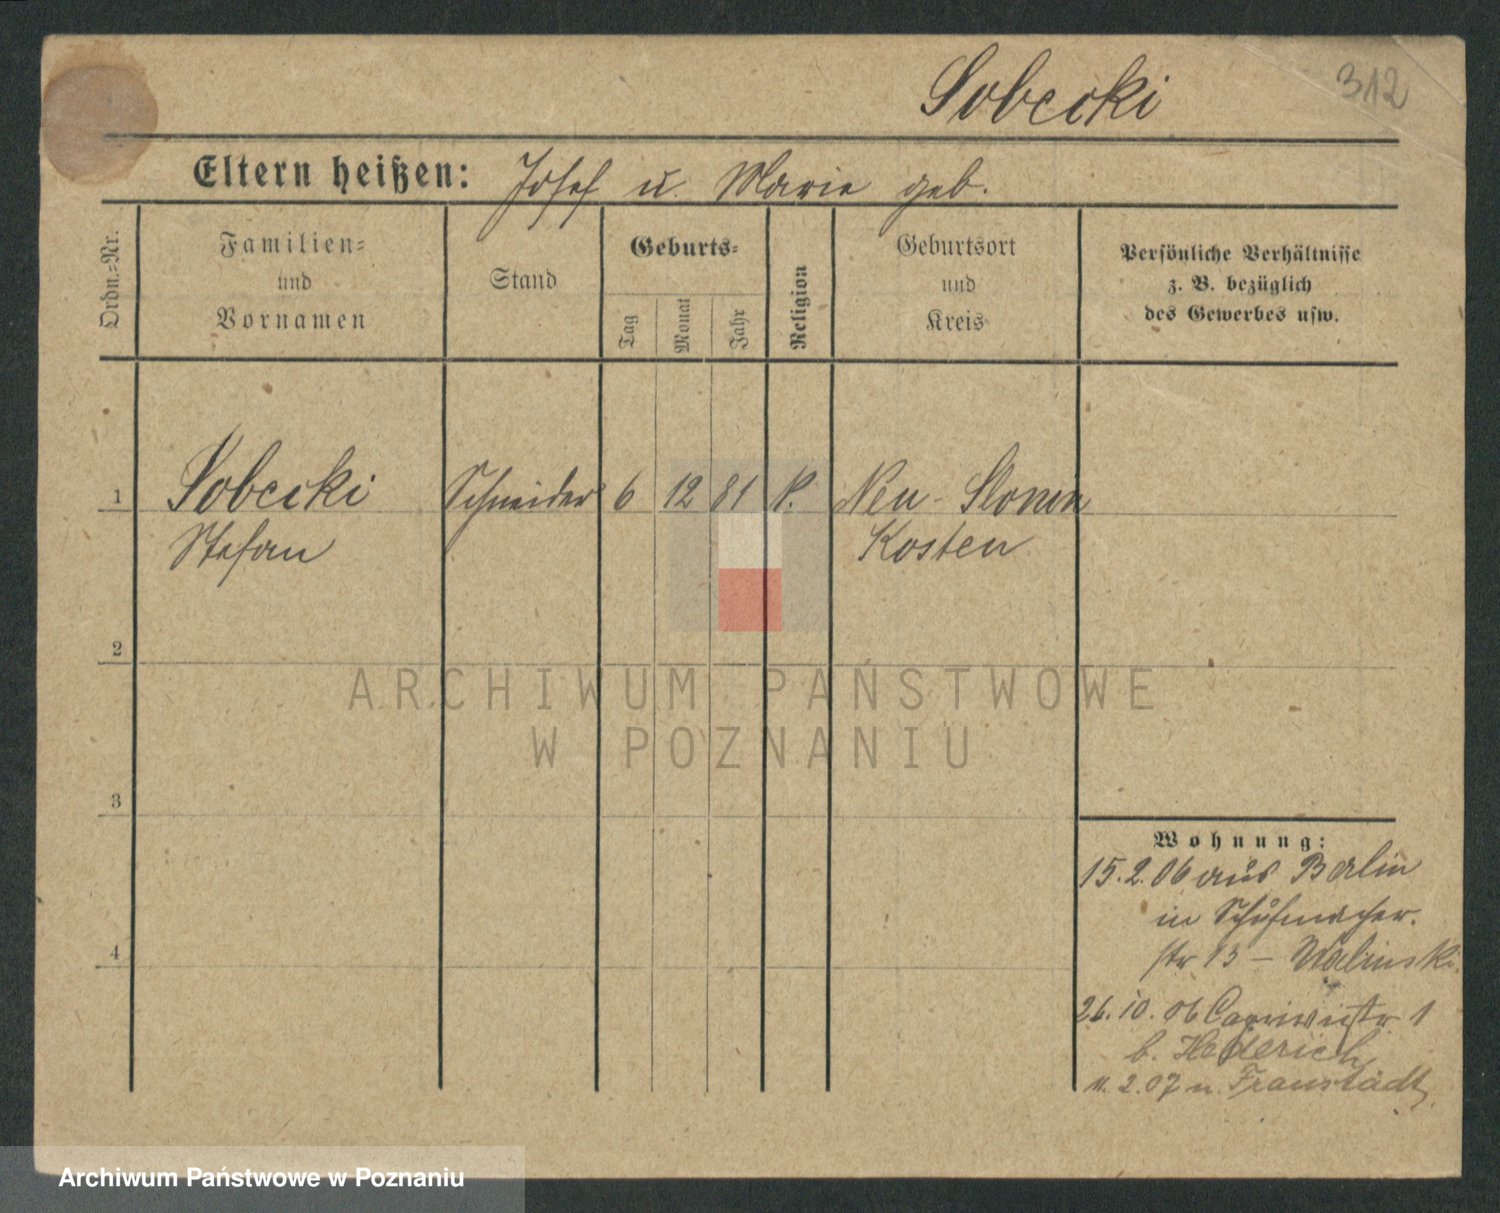 Sobecki
312
Eltern heißen: Josef u. Marie geb.
Ordn.-Nr.
Familien-
und
Vornamen
Stand
Geburts-
Tag
Monat
Jahr
Religion
Geburtsort
und
Kreis
Persönliche Verhältnisse
z. B. bezüglich
des Gewerbes usw.
1 Sobecki Schneider 6 12 81 k. Neu-Slonin
Stefan Kosten
2
ARCHIWUM PAŃSTWOWE
W POZNANIU
3
Wohnung:
15.2.06 aus Berlin
in Schuhmacher.
str 13 – Walinski.
4
26.10.06 Caprivistr 1
b. Hederich
2.07 n. Fraustadt
Archiwum Państwowe w Poznaniu